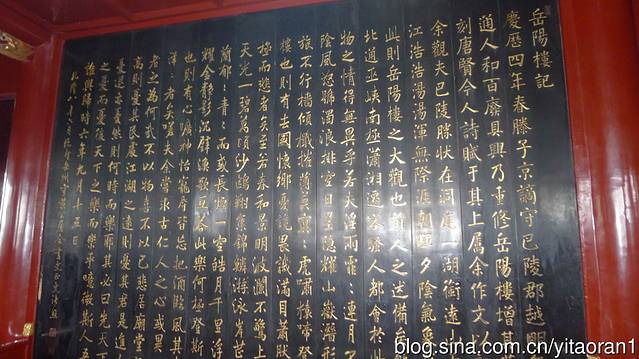 岳陽樓記
慶曆四年春滕子京謫守巴陵郡越明
通人和百廢具興乃重修岳陽樓增其
刻唐賢今人詩賦于其上屬余作文以
余觀夫巴陵勝狀在洞庭一湖銜遠山
江浩浩湯湯渾無際涯朝暉夕陰氣象
此則岳陽樓之大觀也前人之述備矣
北通巫峽南極瀟湘遷客騷人多會於此
物之情得無異乎若夫霪雨霏:連月不
陰風怒號濁浪排空日星隱耀山嶽潛形
旅不行檣傾楫摧薄暮冥:虎嘯猿啼登
樓也則有去國懷鄉憂讒畏譏滿目蕭然
極而悲者矣至若春和景明波瀾不驚上
天光一碧萬頃沙鷗翔集錦鱗游泳岸芷
蘭郁:青:而或長煙一空皓月千里浮
耀金靜影沉璧漁歌互答此樂何極登斯
也則有心曠神怡寵辱皆忘把酒臨風其
洋:者矣嗟夫余嘗求古仁人之心或異
者之為何哉不以物喜不以己悲居廟堂
高則憂其民處江湖之遠則憂其君是進
憂退亦憂然則何時而樂耶其必曰先天下
之憂而憂後天下之樂而樂乎噫微斯人吾
誰與歸時六年九月十五日
blog.sina.com.cn/yitaoran1